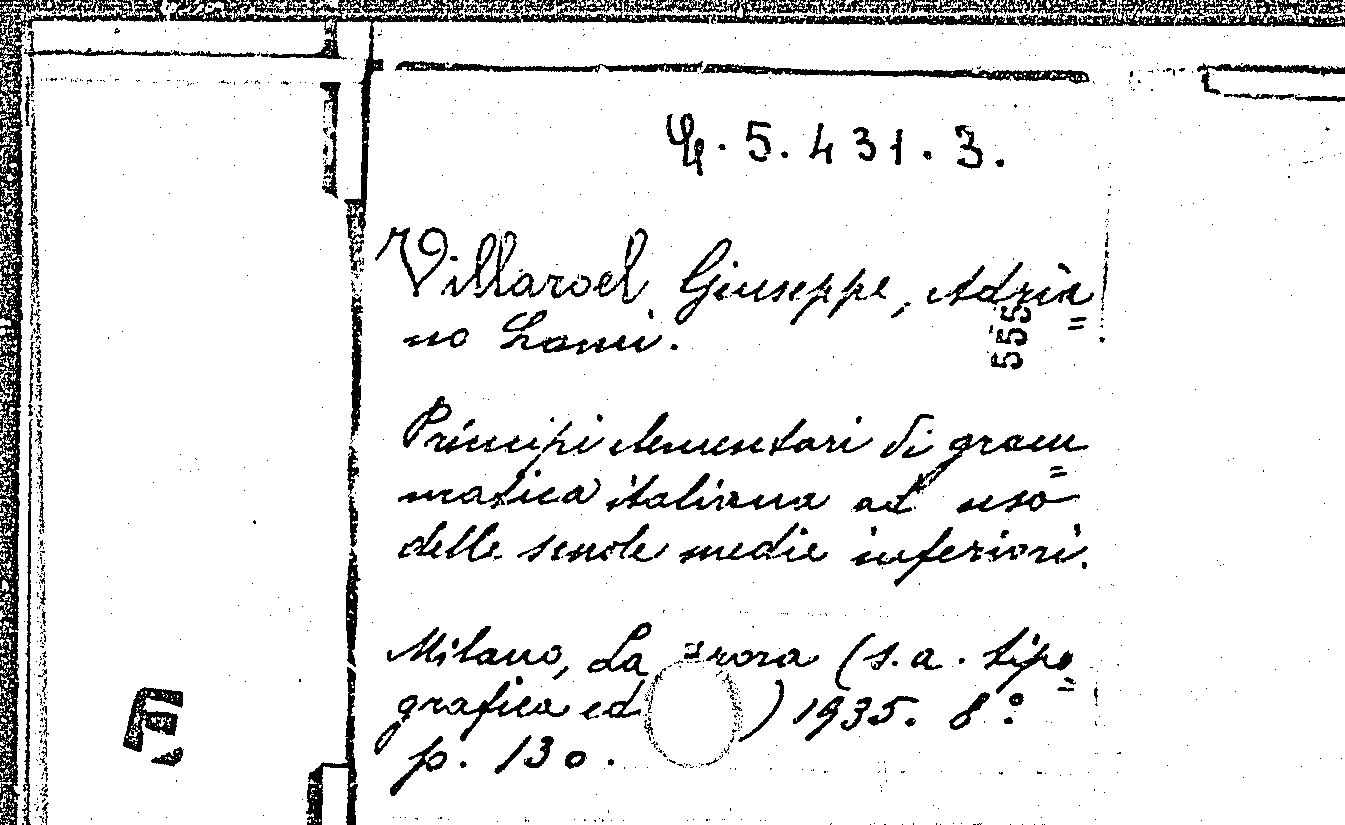 G. 5. 431. 3.
Villaroel Giuseppe, Adria=
no Lami.
555
Principi elementari di gram=
matica italiana ad uso
delle scuole medie inferiori.
Milano, La (s. a. tipo=
grafica ed ) 1935. 8°.
p. 130.